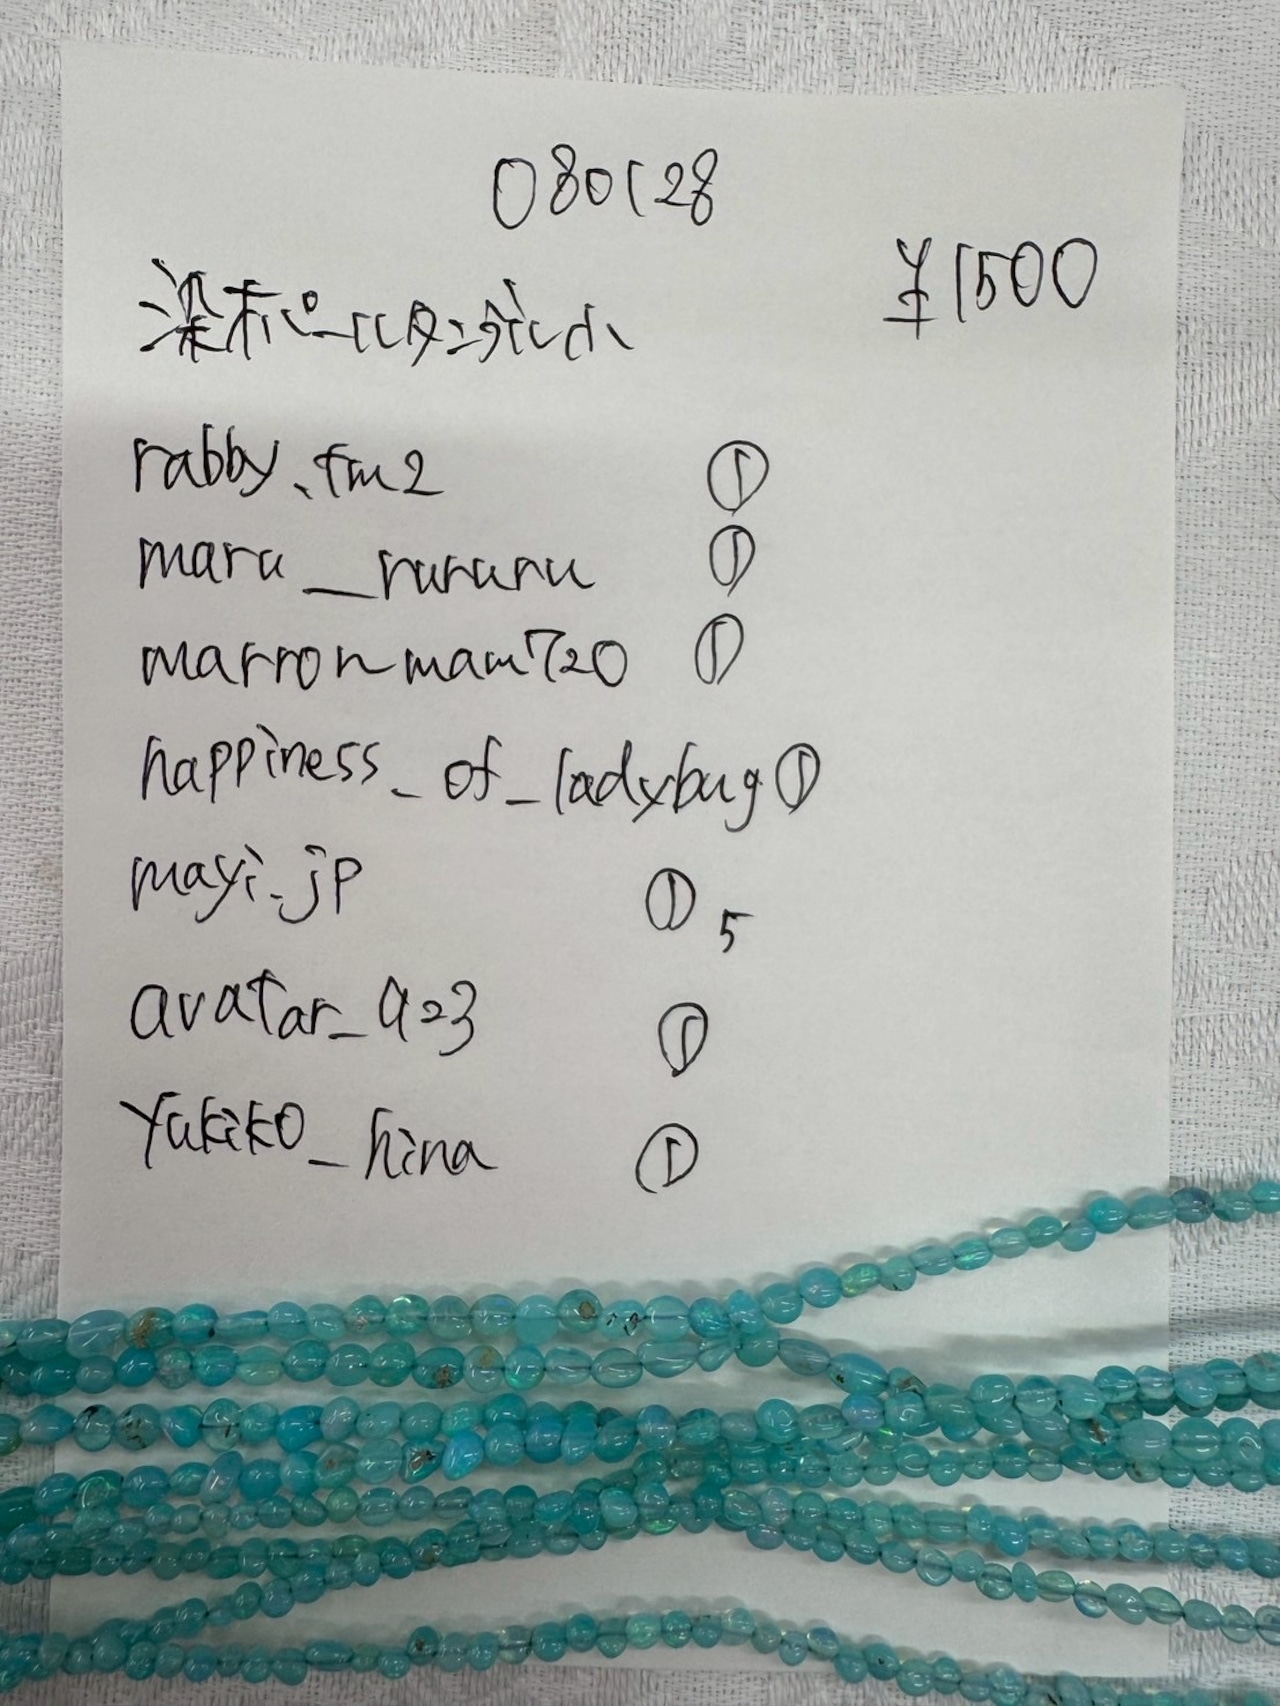 080128
¥1500
染オパール
rabby.fm2 ①
maru__rururu ①
marronmam720 ①
happiness_of_ladybug ①
mayi.jp ① 5
avatar_a23 ①
yukiko_hina ①